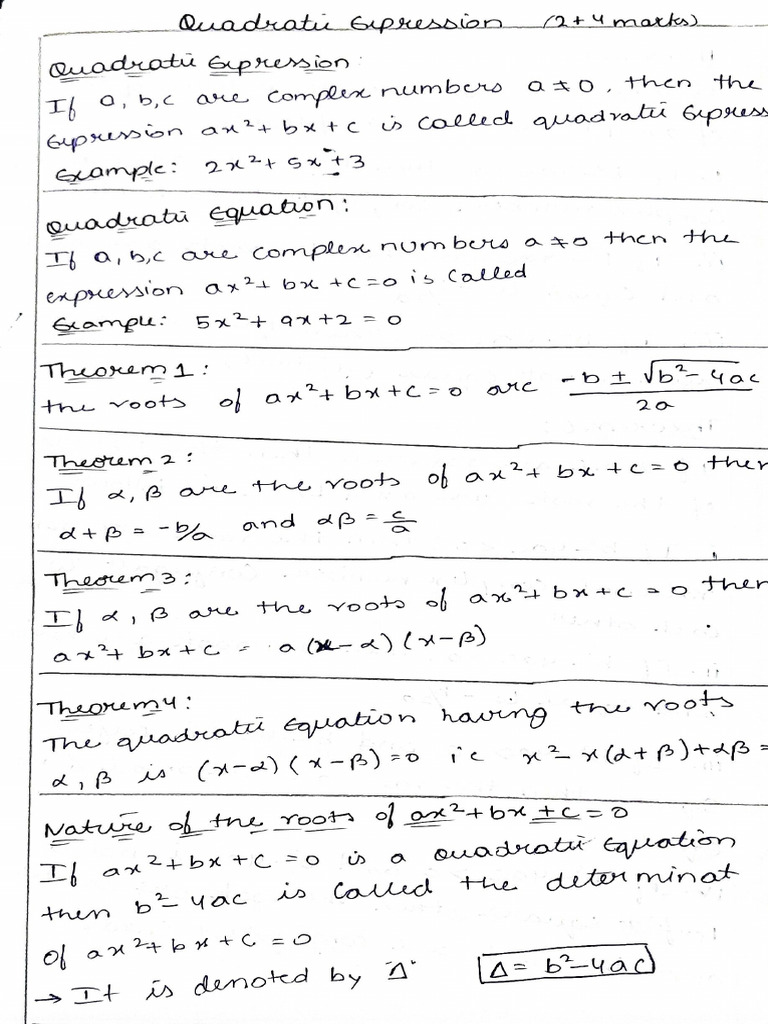 Quadratic Expression (2+4 marks)
Quadratic Expression:
If a, b, c are complex numbers a ≠ 0, then the
Expression ax² + bx + c is called quadratic Express
Example: 2x² + 5x + 3
Quadratic Equation:
If a, b, c are complex numbers a ≠ 0 then the
expression ax² + bx + c = 0 is called
Example: 5x² + 9x + 2 = 0
Theorem 1:
the roots of ax² + bx + c = 0 are (-b ± √(b² - 4ac))/2a
Theorem 2:
If α, β are the roots of ax² + bx + c = 0 then
α + β = -b/a and αβ = c/a
Theorem 3:
If α, β are the roots of ax² + bx + c = 0 then
ax² + bx + c = a(x - α)(x - β)
Theorem 4:
The quadratic Equation having the roots
α, β is (x - α)(x - β) = 0 ie x² - x(α + β) + αβ =
Nature of the roots of ax² + bx + c = 0
If ax² + bx + c = 0 is a quadratic Equation
then b² - 4ac is called the determinat
of ax² + bx + c = 0
→ It is denoted by "Δ" Δ = b² - 4ac